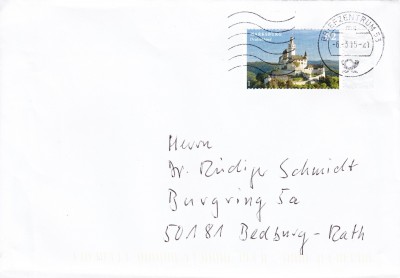 MARKSBURG
BRIEFZENTRUM 53
-6.-3.15-21
Herrn
Dr. Rüdiger Schmidt
Burgring 5a
50181 Bedburg-Rath